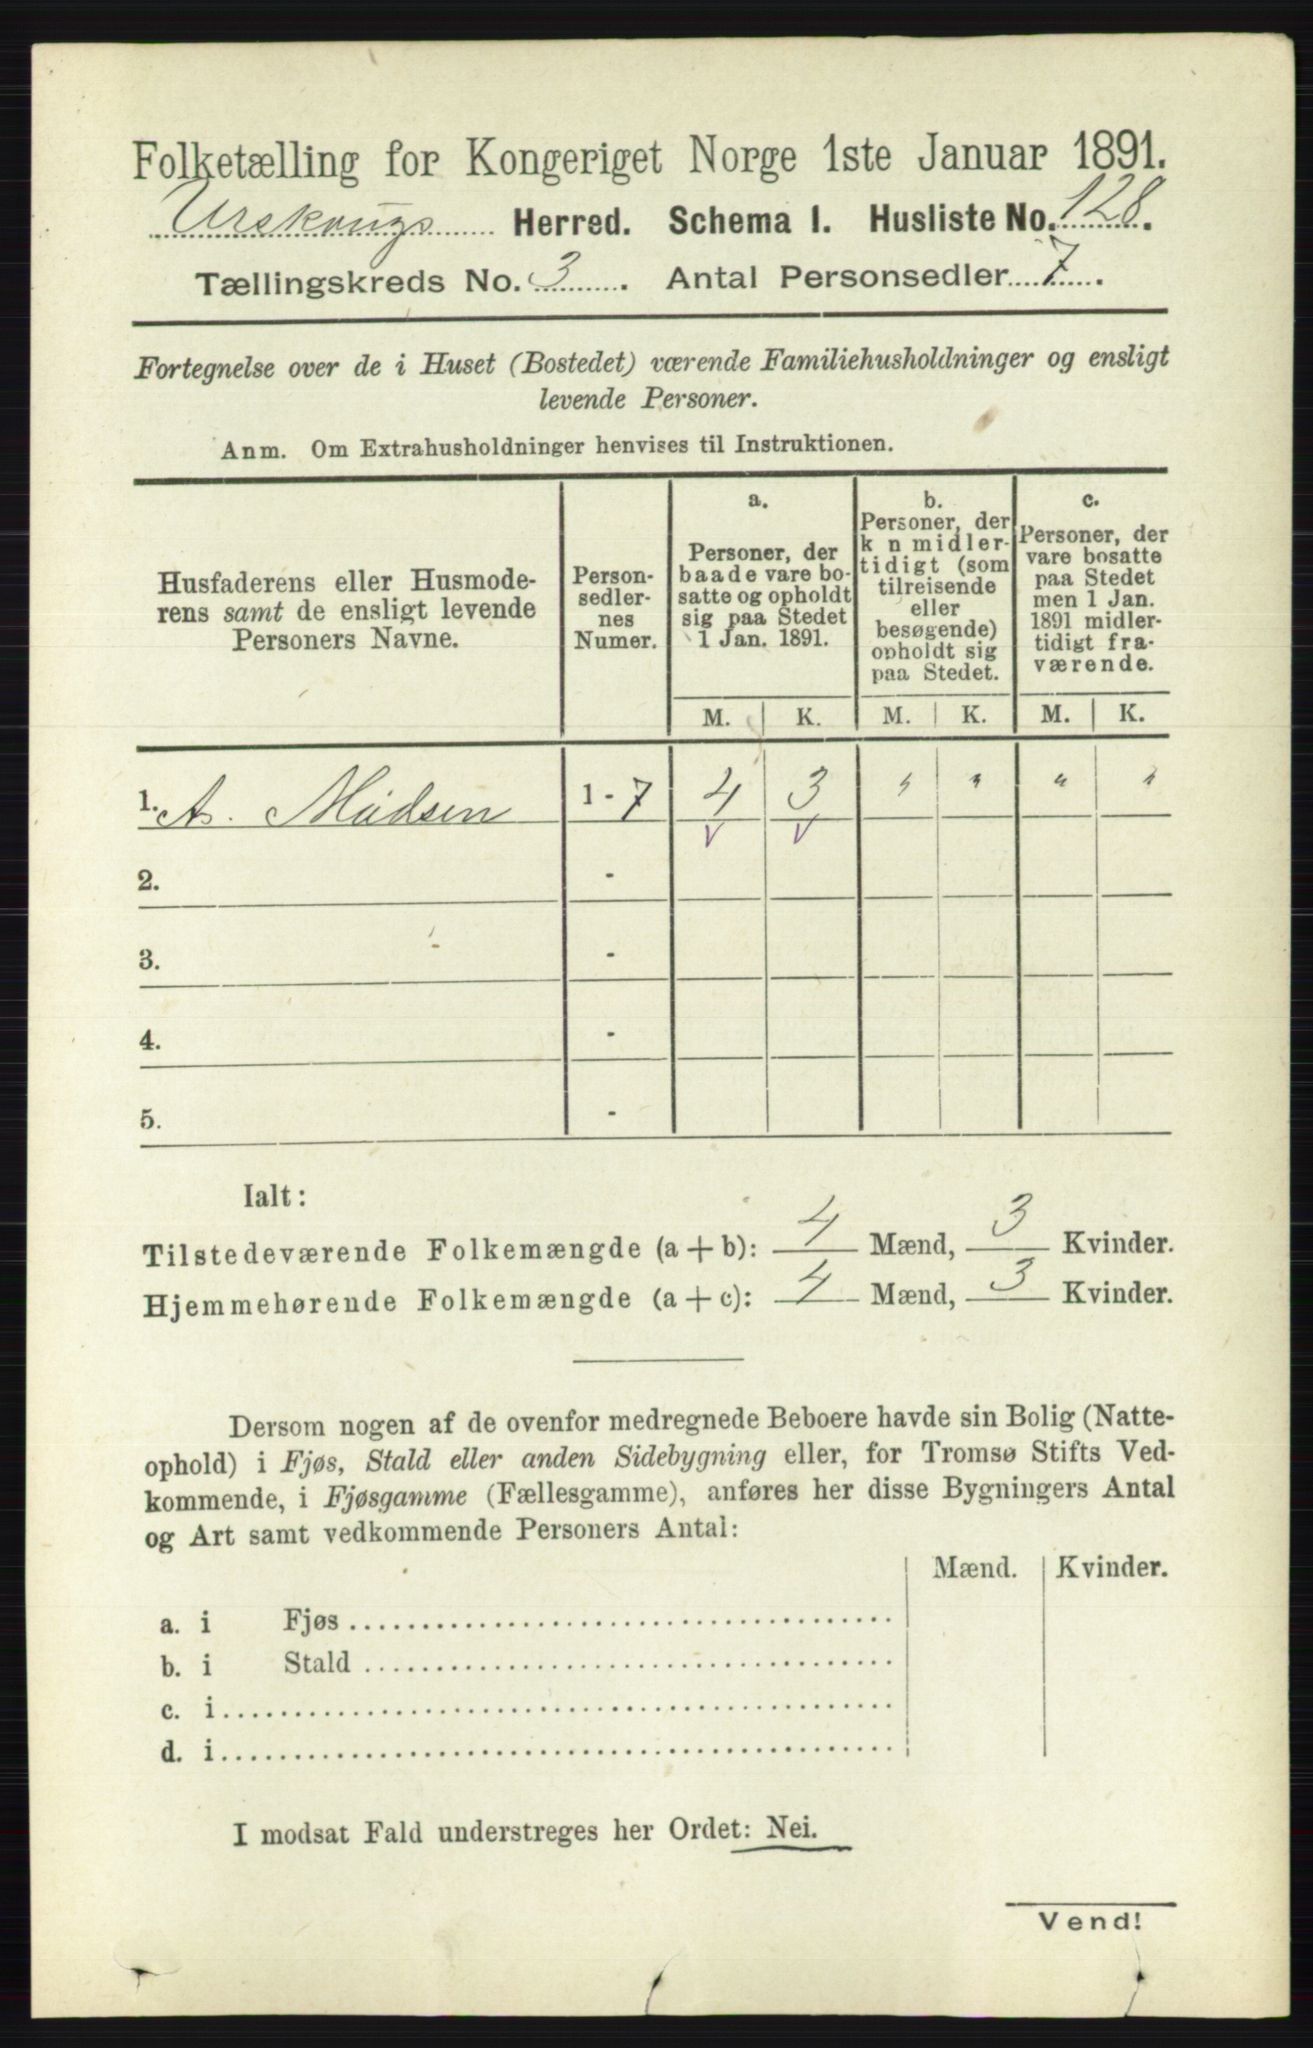 Folketælling for Kongeriget Norge 1ste Januar 1891.
Urskougs Herred. Schema I. Husliste No. 128.
Tællingskreds No. 3. Antal Personsedler 7.
Fortegnelse over de i Huset (Bostedet) værende Familiehusholdninger og ensligt
levende Personer.
Anm. Om Extrahusholdninger henvises til Instruktionen.
Husfaderens eller Husmode-
rens samt de ensligt levende
Personers Navne.
Person-
sedler-
nes
Numer.
a.
Personer, der
baade vare bo-
satte og opholdt
sig paa Stedet
1 Jan. 1891.
b.
Personer, der
k n midler-
tidigt (som
tilreisende
eller
besøgende)
opholdt sig
paa Stedet.
c.
Personer, der
vare bosatte
paa Stedet
men 1 Jan.
1891 midler-
tidigt fra-
værende.
M. K. M. K. M. K.
1. A. Madsen 1 - 7 4 3 " " " "
v v
2. -
3. -
4. -
5. -
Ialt:
Tilstedeværende Folkemængde (a + b): 4 Mænd, 3 Kvinder.
Hjemmehørende Folkemængde (a + c): 4 Mænd, 3 Kvinder.
Dersom nogen af de ovenfor medregnede Beboere havde sin Bolig (Natte-
ophold) i Fjøs, Stald eller anden Sidebygning eller, for Tromsø Stifts Ved-
kommende, i Fjøsgamme (Fællesgamme), anføres her disse Bygningers Antal
og Art samt vedkommende Personers Antal:
Mænd. Kvinder.
a. i Fjøs
b. i Stald
c. i
d. i
I modsat Fald understreges her Ordet: Nei.
Vend!